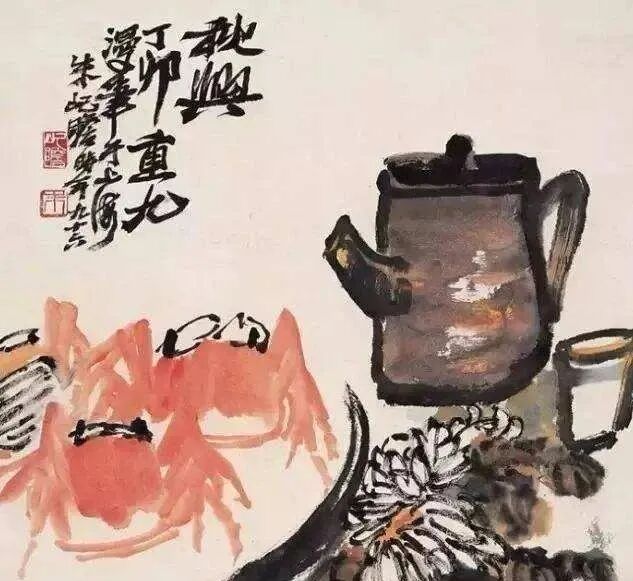 秋興
丁卯重九
漫筆于上海
朱屺瞻時年九十六
屺瞻